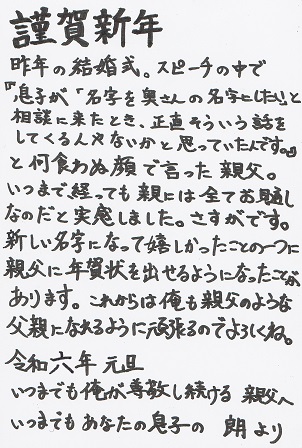 謹賀新年
昨年の結婚式。スピーチの中で
『息子が「名字を奥さんの名字にしたい」と
相談に来たとき、正直そういう話を
してくる人やないかと思っていたんです。』
と何食わぬ顔で言った親父。
いつまで経っても親には全てお見通し
なのだと実感しました。さすがです。
新しい名字になって嬉しかったことの一つに
親父に年賀状を出せるようになったことが
あります。これからは俺も親父のような
父親になれるように頑張るのでよろしくね。
令和六年 元旦
いつまでも俺が尊敬し続ける 親父へ
いつまでもあなたの息子の 朗より